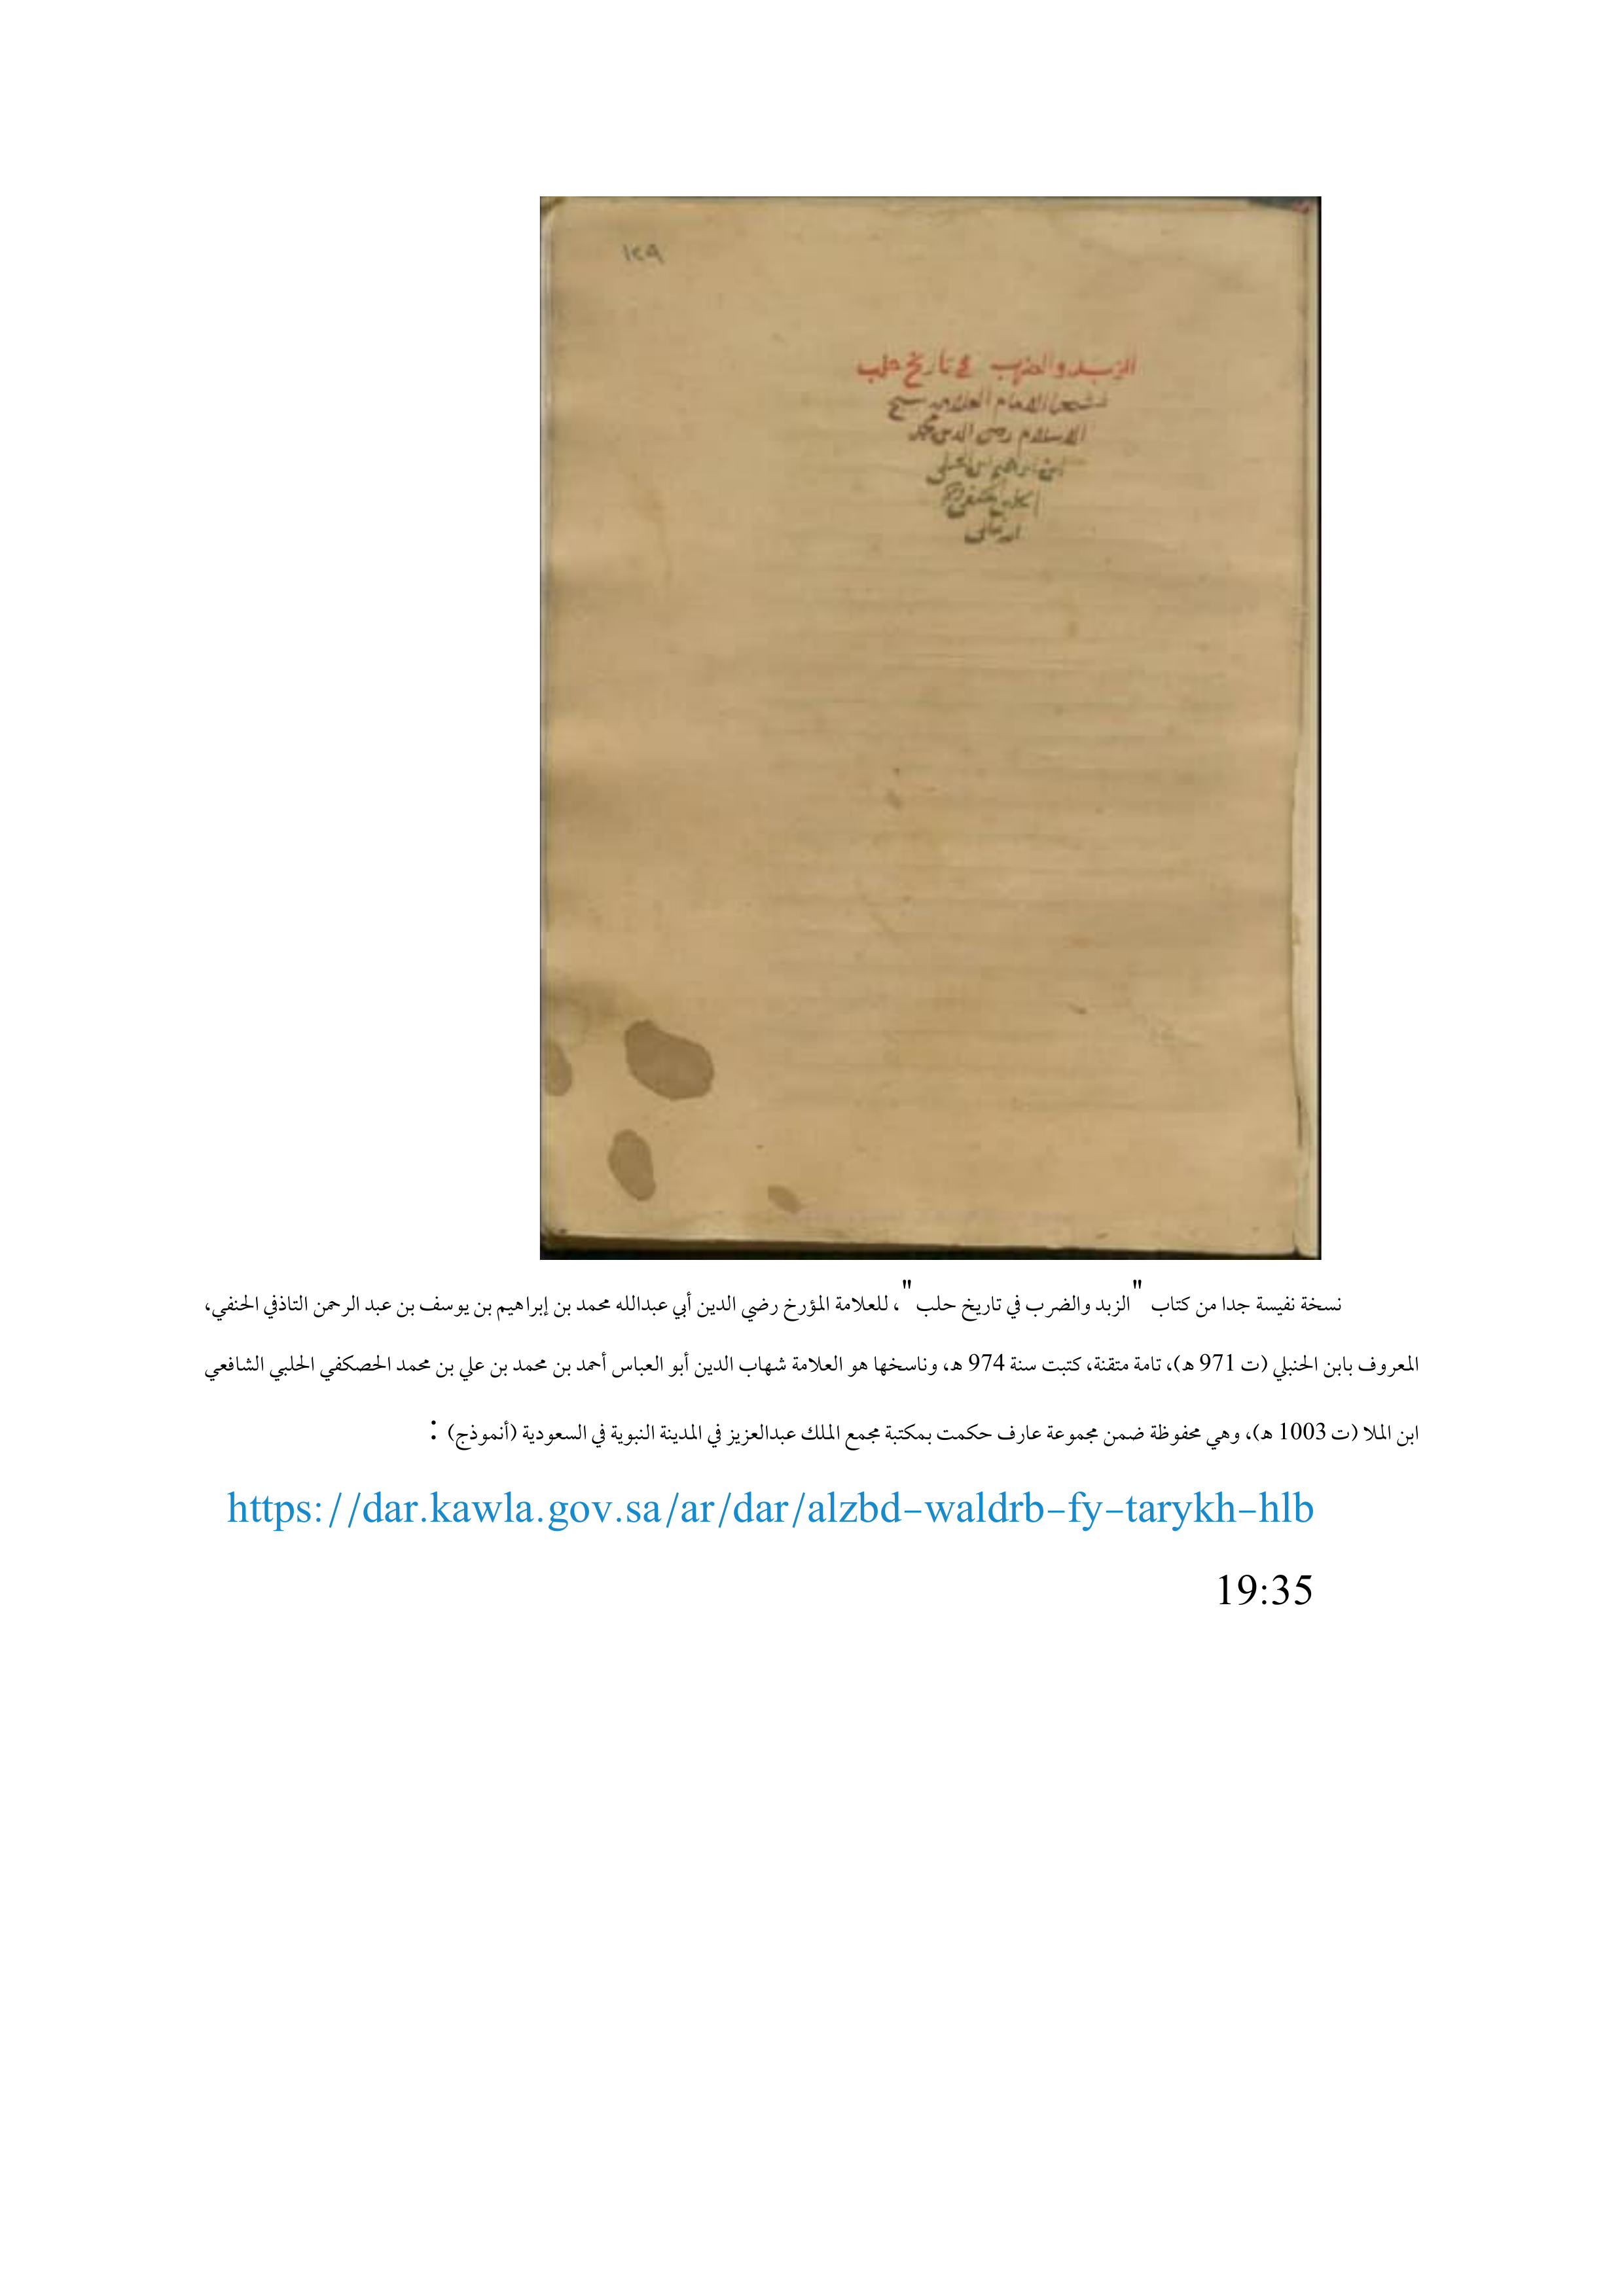 ١٢٩
الزبد والضرب في تاريخ حلب
لشيخنا الامام العلامه شيخ
الاسلام رضي الدين محمد
ابن ابراهيم ابن الحنبلي
الحلبي الحنفي رحمه
الله تعالى
نسخة نفيسة جدا من كتاب "الزبد والضرب في تاريخ حلب"، للعلامة المؤرخ رضي الدين أبي عبدالله محمد بن إبراهيم بن يوسف بن عبد الرحمن التاذفي الحنفي،
المعروف بابن الحنبلي (ت 971 هـ)، تامة متقنة، كتبت سنة 974 هـ، وناسخها هو العلامة شهاب الدين أبو العباس أحمد بن محمد بن علي بن محمد الحصكفي الحلبي الشافعي
ابن الملا (ت 1003 هـ)، وهي محفوظة ضمن مجموعة عارف حكمت بمكتبة مجمع الملك عبدالعزيز في المدينة النبوية في السعودية (أنموذج) :
https://dar.kawla.gov.sa/ar/dar/alzbd-waldrb-fy-tarykh-hlb
19:35